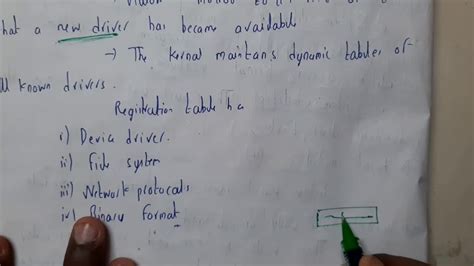 that a new driver has became available
→ The Kernal maintans dynamic tables of
ll known drivers.
Registration table ha
i) Device driver.
ii) File system
iii) Network protocals
iv) Binary Format